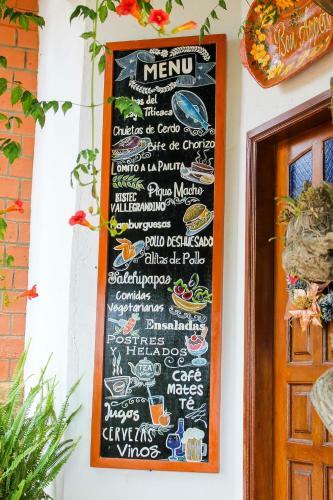 MENU
del
Titicaca
Chuletas de Cerdo
Bife de Chorizo
LOMITO A LA PAILITA
Pique Macho
BISTEC
VALLEGRANDINO
Hamburguesas
POLLO DESHUESADO
Alitas de Pollo
Salchipapas
Comidas
Vegetarianas
Ensaladas
POSTRES
HELADOS
TEA
CAFÉ
MATES
TÉ
JUGOS
CERVEZAS
Vinos